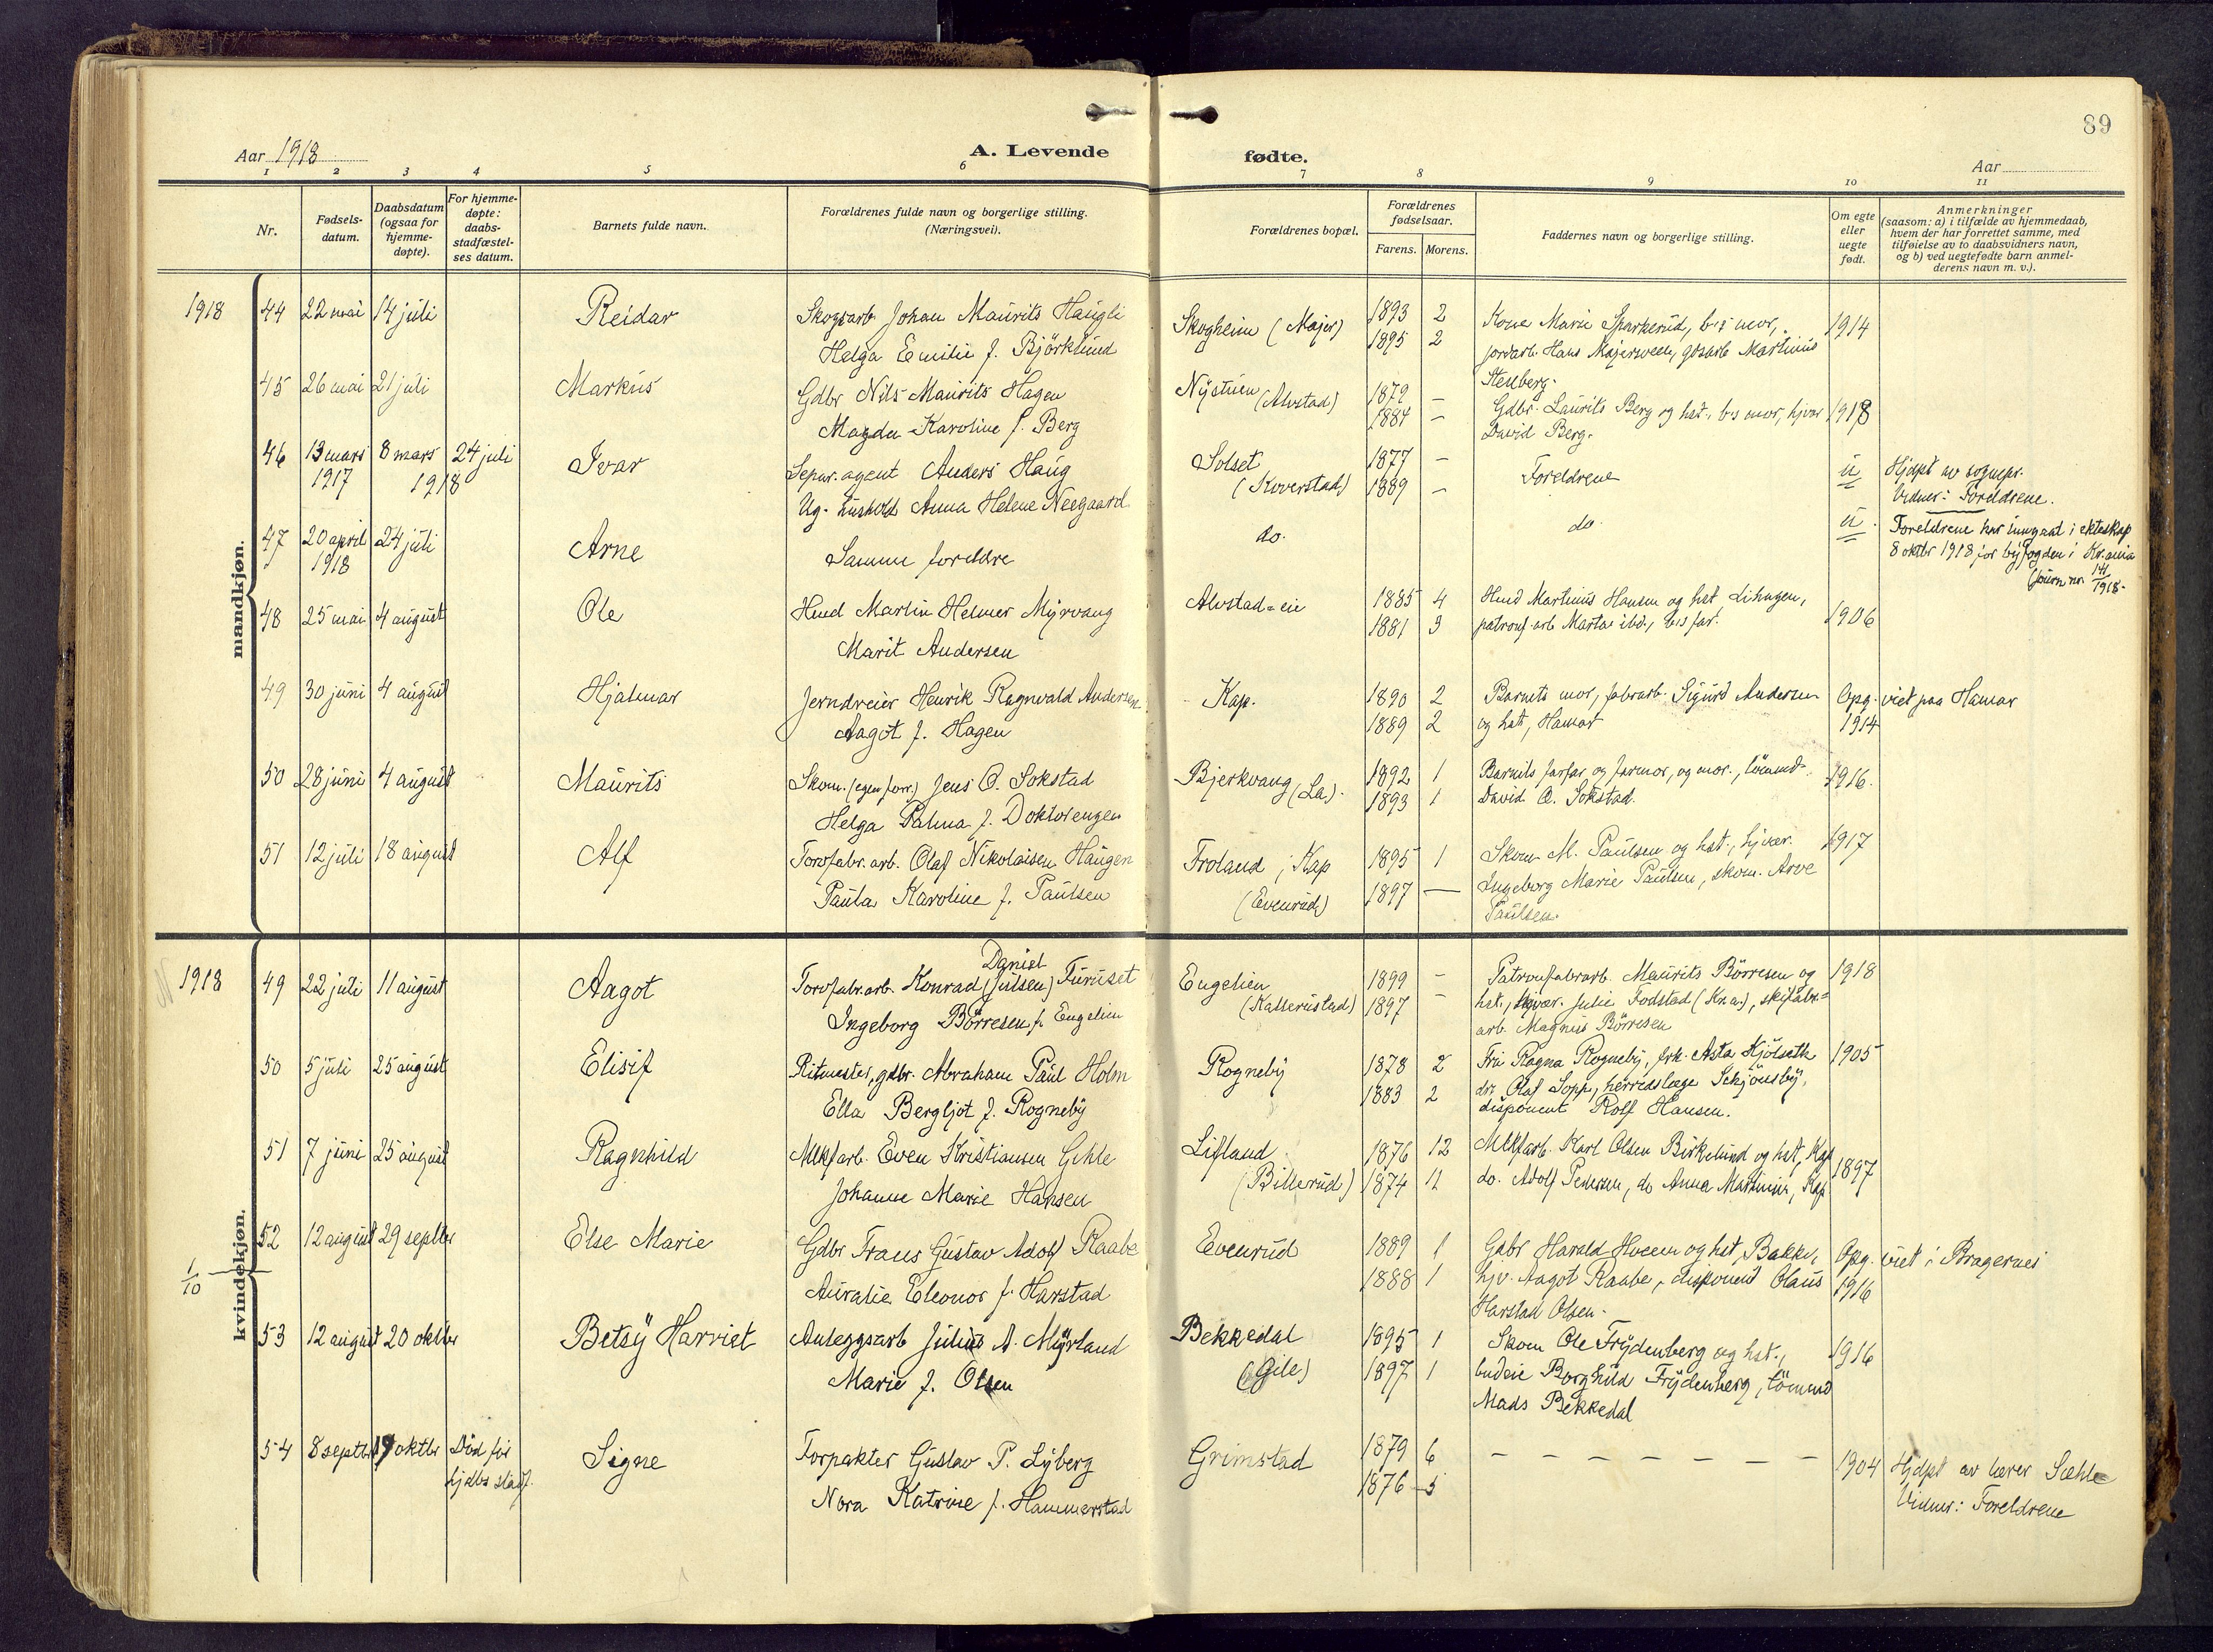 89
Aar 1918
A. Levende fødte.
Aar
1 2 3 4 5 6 7 8 9 10 11
Nr.
Fødsels-
datum.
Daabsdatum
(ogsaa for
hjemme-
døpte).
For hjemme-
døpte:
daabs-
stadfæstel-
ses datum.
Barnets fulde navn.
Forældrenes fulde navn og borgerlige stilling.
(Næringsvei).
Forældrenes bopæl.
Forældrenes
fødselsaar.
Farens. Morens.
Faddernes navn og borgerlige stilling.
Om egte
eller
uegte
født.
Anmerkninger
(saasom: a) i tilfælde av hjemmedaab,
hvem der har forrettet samme, med
tilføielse av to daabsvidners navn,
og b) ved uegtefødte barn anmel-
derens navn m. v.).
mandkjøn.
1918 44 22 mai 14 juli Reidar Skogsarb. Johan Maurits Haugli Skogheim (Majer) 1893 2 Kone Marie Sparkerud, b's mor, 1914
Helga Emilie f. Björklund 1895 2 jordarb. Hans Majerween, gdsarb Martinius
Stenberg.
45 26 mai 21 juli Markus Gdbr Nils Maurits Hagen Nystuen (Alvstad) 1879 –
Magda Karoline f. Berg 1884 – Gdbr. Laurits Berg og hst., b's mor, hjvær 1918
David Berg.
46 13 mars 8 mars 24 juli Ivar Separ. agent Anders Haug Solset 1877 – Foreldrene u Hjdpt av sognepr.
1917 1918 Ug. hushold Anna Helene Neegaard (Koverstad) 1889 – Vidner: Foreldrene.
47 20 april 24 juli Arne Samme foreldre do. do. u. Foreldrene har inngaat i ekteskap
1918 8 oktbr 1918 for byfogden i Kr.ania
(Journ nr. 141/1918.
48 25 mai 4 august Ole Hmd Martin Helmer Myrvang Alvstad=eie 1885 4 Hmd Martinius Hansen og hst Lihagen, 1906
Marit Andersen 1881 3 patronf.arb Marta ibd., b's far.
49 30 juni 4 august Hjalmar Jerndreier Henrik Ragnvald Andersen Kap. 1890 2 Barnets mor, fabrarb. Sigurd Andersen Opg. viet paa Hamar
Aagot f. Hagen 1889 2 og hst, Hamar 1914
50 28 juni 4 august Maurits Skom. (egen forr.) Jens O. Sokstad Bjerkvang (La.). 1892 1 Barnets farfar og farmor, og mor., tömmd=. 1916.
Helga Palma f. Doktorengen 1893 1 David O. Sokstad.
51 12 juli 18 august Alf Torvfabr.arb. Olaf Nikolaisen Haugen Froland, Kap 1895 1 Skom M. Paulsen og hst., hjvær. 1917
Paula Karoline f. Paulsen (Evenrud) 1897 – Ingeborg Marie Paulsen, skom. Arve
Paulsen.
kvindekjøn.
1918 49 22 juli 11 august Aagot Torvfabr.arb. Konrad Daniel (Julsen) Furuset Engelien 1899 – Patronfabrarb. Maurits Börresen og 1918
Ingeborg Börresen f. Engelien (Kallerustad) 1897 – hst., hjvær. Julie Fodstad (Kr.a.), skifabr=
arb. Magnus Börresen
50 5 juli 25 august Elisif Ritmester, gdbr. Abraham Paul Holm Rogneby 1878 2 Fru Ragna Rogneby, frk. Asta Kjölseth 1905
Ella Bergljot f. Rogneby 1883 2 dr. Olaf Sopp, herredslæge Schjönsby,
disponent Rolf Hansen.
51 7 juni 25 august Ragnhild Mlkfarb. Even Kristiansen Gihle Lifland 1876 12 Mlkfarb. Karl Olsen Birkelund og hst, Kap 1897
Johanne Marie Hansen (Billerud) 1874 11 do. Adolf Pedersen, do Anna Martinsen, Kap
52 12 august 29 septbr Else Marie Gdbr Frans Gustav Adolf Raabe Evenrud 1889 1 Gabr Harald Hveem og hst, Bakke, Opg. viet i Bragernes
1/10 Auralie Eleonor f. Harstad 1888 1 hjv. Aagot Raabe, disponent Olaus 1916
Harstad Olsen.
53 12 august 20 oktbr Betsy Harriet Anleggsarb Julius A. Myrland Bekkedal 1895 1 Skom Ole Frydenberg og hst., 1916
Marie f. Olsen (Gile) 1897 1 budeie Borghild Frydenberg, tömmd
Mads Bekkedal
54 8 septbr 19 oktbr Död før Signe Forpakter Gustav P. Lyberg Grimstad 1879 6 – – – – – – – 1904 Hjdpt av lærer Sæhle
hjdbs stadf. Nora Katrine f. Hammerstad 1876 5 Vidner: Foreldrene